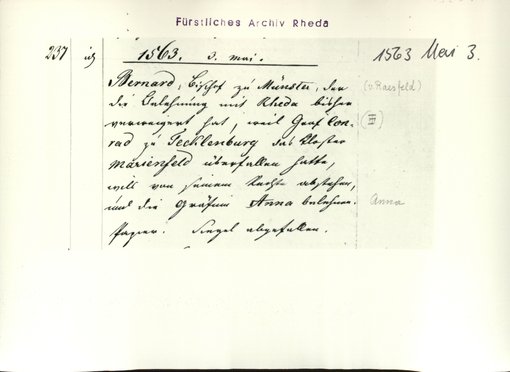 Fürstliches Archiv Rheda
237
1563. 3. mai.
1563 Mai 3.
Bernard, Bischof zu Münster, der
(v. Raesfeld)
die Belehnung mit Rheda bisher
verweigert hat, weil Graf Con-
(III)
rad zu Tecklenburg das Kloster
Marienfeld überfallen hatte,
will von seinem Rechte abstehen,
und die Gräfinn Anna belehnen.
Anna
Papier. Siegel abgefallen.